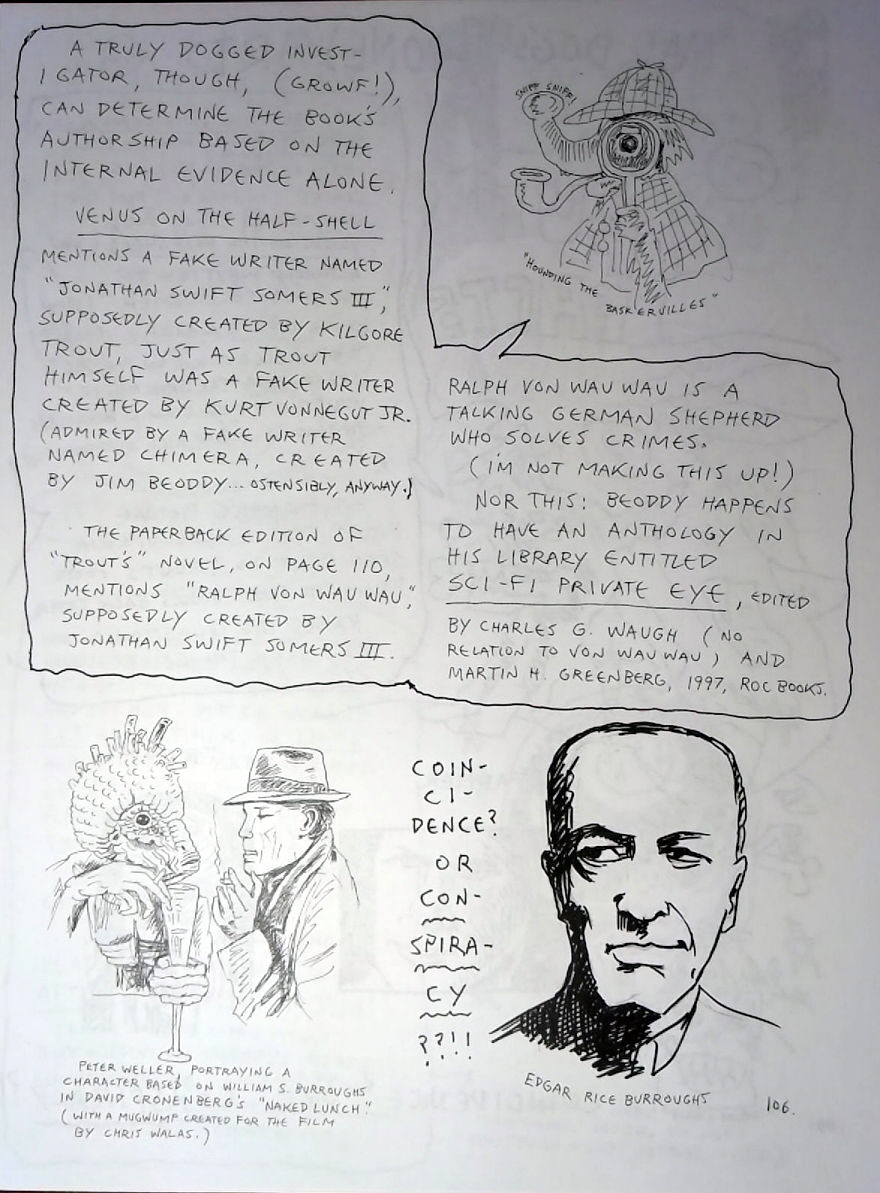 A TRULY DOGGED INVEST-
IGATOR, THOUGH, (GROWF!),
CAN DETERMINE THE BOOK'S
AUTHORSHIP BASED ON THE
INTERNAL EVIDENCE ALONE.
VENUS ON THE HALF-SHELL
MENTIONS A FAKE WRITER NAMED
"JONATHAN SWIFT SOMERS III",
SUPPOSEDLY CREATED BY KILGORE
TROUT, JUST AS TROUT
HIMSELF WAS A FAKE WRITER
CREATED BY KURT VONNEGUT JR.
(ADMIRED BY A FAKE WRITER
NAMED CHIMERA, CREATED
BY JIM BEODDY... OSTENSIBLY, ANYWAY.)
THE PAPERBACK EDITION OF
"TROUT'S" NOVEL, ON PAGE 110,
MENTIONS "RALPH VON WAU WAU",
SUPPOSEDLY CREATED BY
JONATHAN SWIFT SOMERS III.
SNIFF SNIFF!
"HOUNDING THE
BASKERVILLES"
RALPH VON WAU WAU IS A
TALKING GERMAN SHEPHERD
WHO SOLVES CRIMES.
(I'M NOT MAKING THIS UP!)
NOR THIS: BEODDY HAPPENS
TO HAVE AN ANTHOLOGY IN
HIS LIBRARY ENTITLED
SCI-FI PRIVATE EYE, EDITED
BY CHARLES G. WAUGH (NO
RELATION TO VON WAU WAU) AND
MARTIN H. GREENBERG, 1997, ROC BOOKS.
COIN-
CI-
DENCE?
OR
CON-
SPIRA-
CY
??!!
PETER WELLER, PORTRAYING A
CHARACTER BASED ON WILLIAM S. BURROUGHS
IN DAVID CRONENBERG'S "NAKED LUNCH".
(WITH A MUGWUMP CREATED FOR THE FILM
BY CHRIS WALAS.)
EDGAR RICE BURROUGHS
106.